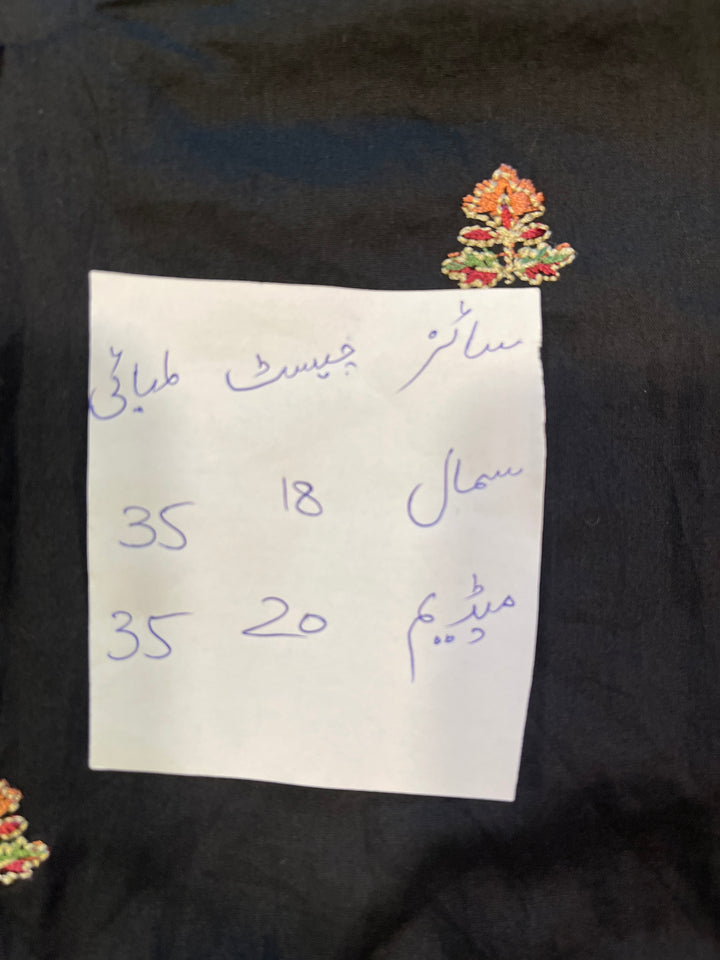 سائز چیسٹ لمبائی
سمال 18 35
میڈیم 20 35